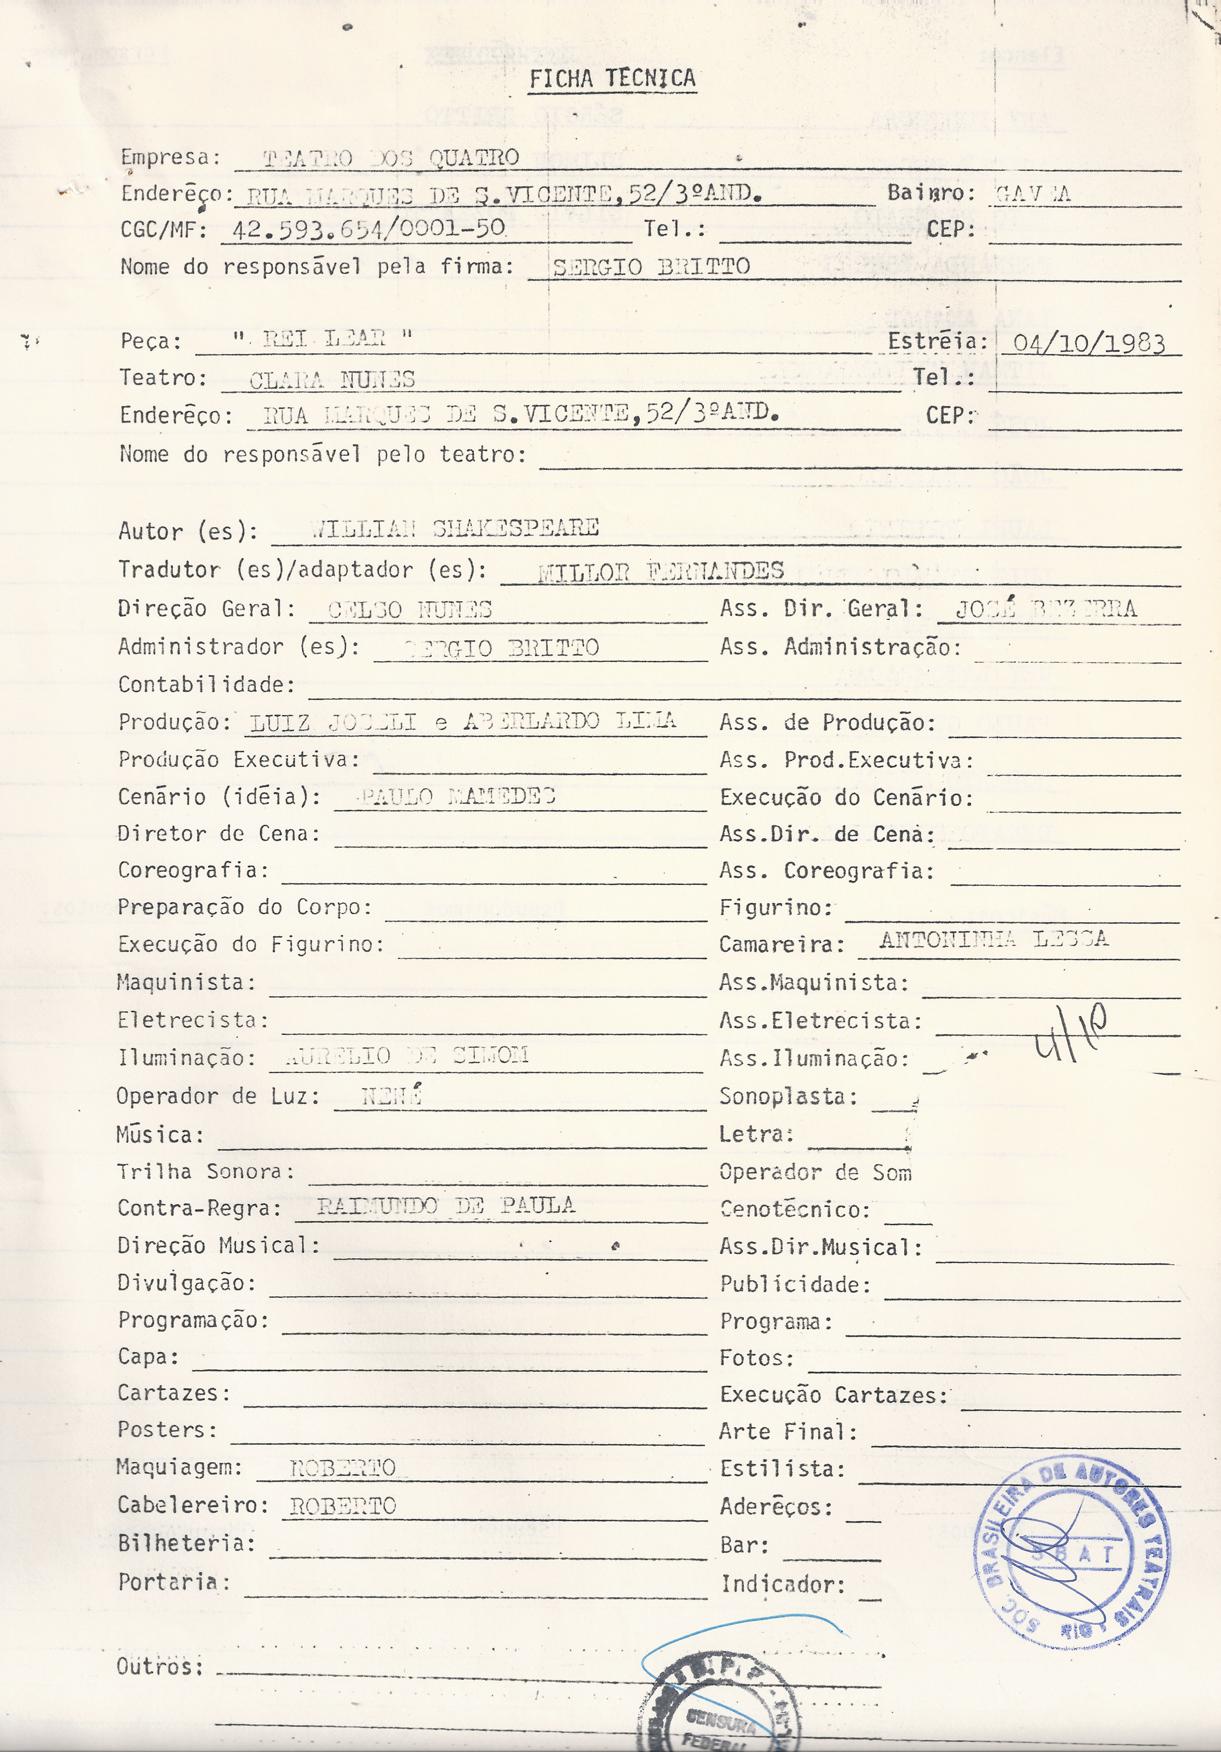 FICHA TÉCNICA
Empresa: TEATRO DOS QUATRO
Enderêço: RUA MARQUES DE S.VICENTE,52/3ºAND. Bairro: GAVEA
CGC/MF: 42.593.654/0001-50 Tel.: CEP:
Nome do responsável pela firma: SERGIO BRITTO
Peça: " REI LEAR " Estréia: 04/10/1983
Teatro: CLARA NUNES Tel.:
Enderêço: RUA MARQUES DE S.VICENTE,52/3ºAND. CEP:
Nome do responsável pelo teatro:
Autor (es): WILLIAN SHAKESPEARE
Tradutor (es)/adaptador (es): MILLOR FERNANDES
Direção Geral: CELSO NUNES Ass. Dir. Geral: JOSÉ BEZERRA
Administrador (es): SERGIO BRITTO Ass. Administração:
Contabilidade:
Produção: LUIZ JOSELI e ABERLARDO LIMA Ass. de Produção:
Produção Executiva: Ass. Prod.Executiva:
Cenário (idéia): PAULO MAMEDES Execução do Cenário:
Diretor de Cena: Ass.Dir. de Cena:
Coreografia: Ass. Coreografia:
Preparação do Corpo: Figurino:
Execução do Figurino: Camareira: ANTONINHA LESSA
Maquinista: Ass.Maquinista:
Eletrecista: Ass.Eletrecista:
4/10
Iluminação: AURELIO DE SIMOM Ass.Iluminação:
Operador de Luz: NENÉ Sonoplasta:
Música: Letra:
Trilha Sonora: Operador de Som
Contra-Regra: RAIMUNDO DE PAULA Cenotécnico:
Direção Musical: Ass.Dir.Musical:
Divulgação: Publicidade:
Programação: Programa:
Capa: Fotos:
Cartazes: Execução Cartazes:
Posters: Arte Final:
Maquiagem: ROBERTO Estilista:
Cabelereiro: ROBERTO Aderêços:
Bilheteria: Bar:
Portaria: Indicador:
SOC BRASILEIRA DE AUTORES TEATRAIS
SBAT
Outros:
CENSURA
FEDERAL